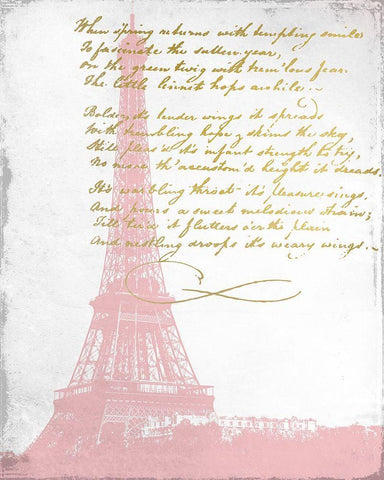 When spring returns with tempting smile
To fascinate the sullen year,
On the green twig with trem'lous fear
The little linnet hops awhile
Bolder its tender wings it spreads
With trembling hope, skims the sky,
While pleas'd its infant strength to try,
No more th' accustom'd height it dreads.
It's warbling throat it's pleasure sings,
And pours a sweet melodious strain;
Till tir'd it flutters o'er the plain
And nestling droops its weary wings.